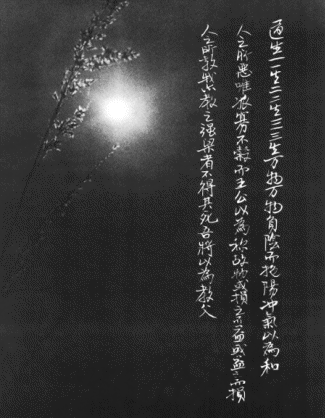 道生一一生二二生三三生万物万物負陰而抱陽沖氣以為和
人之所惡唯孤寡不穀而王公以為称故物或損之而益或益之而損
人之所教我亦教之强梁者不得其死吾将以為教父